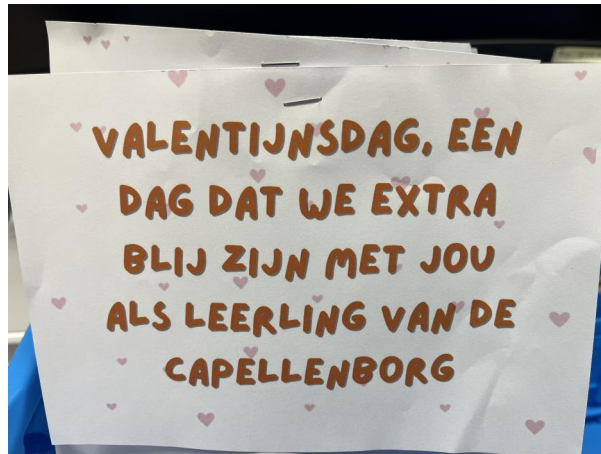 VALENTIJNSDAG, EEN
DAG DAT WE EXTRA
BLIJ ZIJN MET JOU
ALS LEERLING VAN DE
CAPELLENBORG